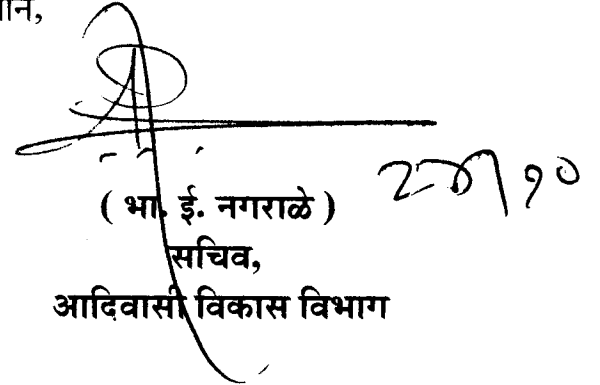 ( भा. ई. नगराळे )
सचिव,
आदिवासी विकास विभाग